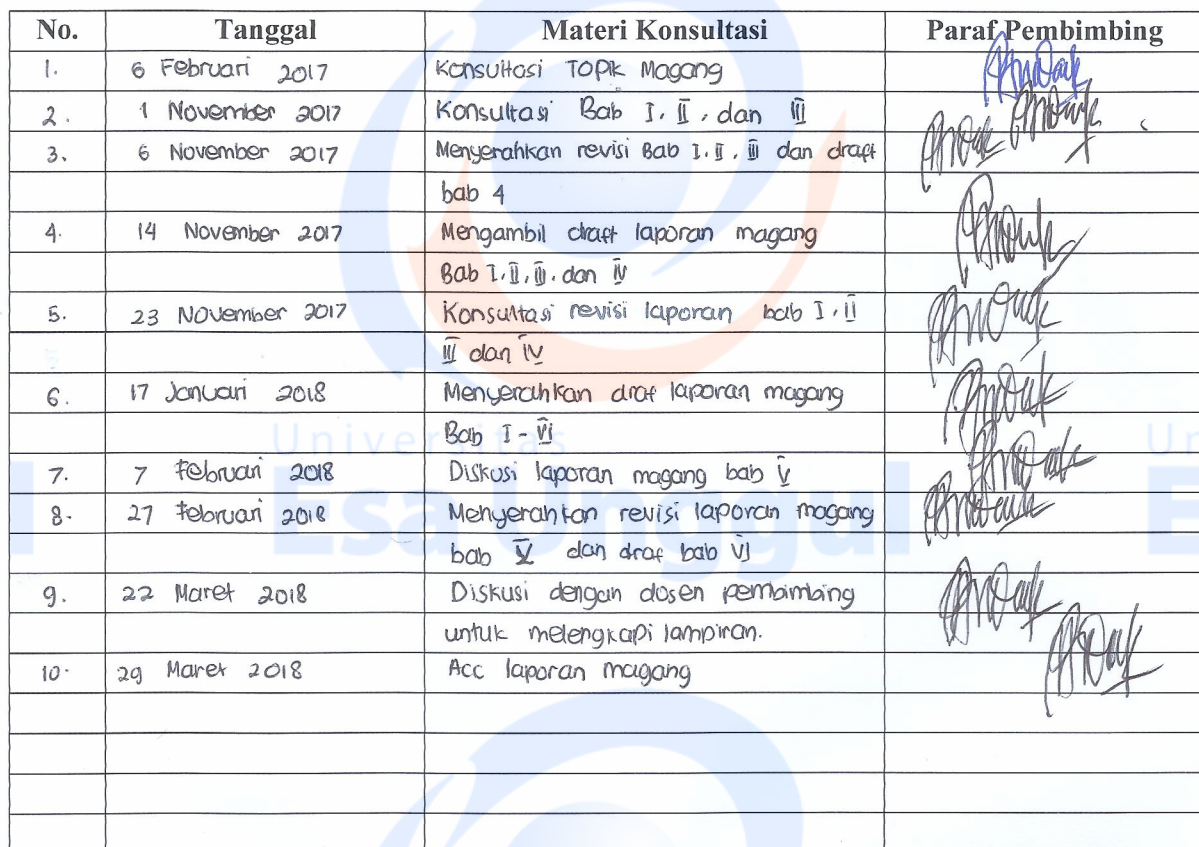 No. Tanggal Materi Konsultasi Paraf Pembimbing
1. 6 Februari 2017 Konsultasi Topik Magang
2. 1 November 2017 Konsultasi Bab I, II, dan III
3. 6 November 2017 Menyerahkan revisi Bab I, II, III dan draft
bab 4
4. 14 November 2017 Mengambil draft laporan magang
Bab I, II, III, dan IV
5. 23 November 2017 Konsultasi revisi laporan bab I, II
III dan IV
6. 17 Januari 2018 Menyerahkan draf laporan magang
Bab I - VI
Universitas
7. 7 Februari 2018 Diskusi laporan magang bab V
8. 27 Februari 2018 Menyerahkan revisi laporan magang
Esa Unggul
bab V dan draf bab VI
9. 22 Maret 2018 Diskusi dengan dosen pembimbing
untuk melengkapi lampiran.
10. 29 Maret 2018 Acc laporan magang